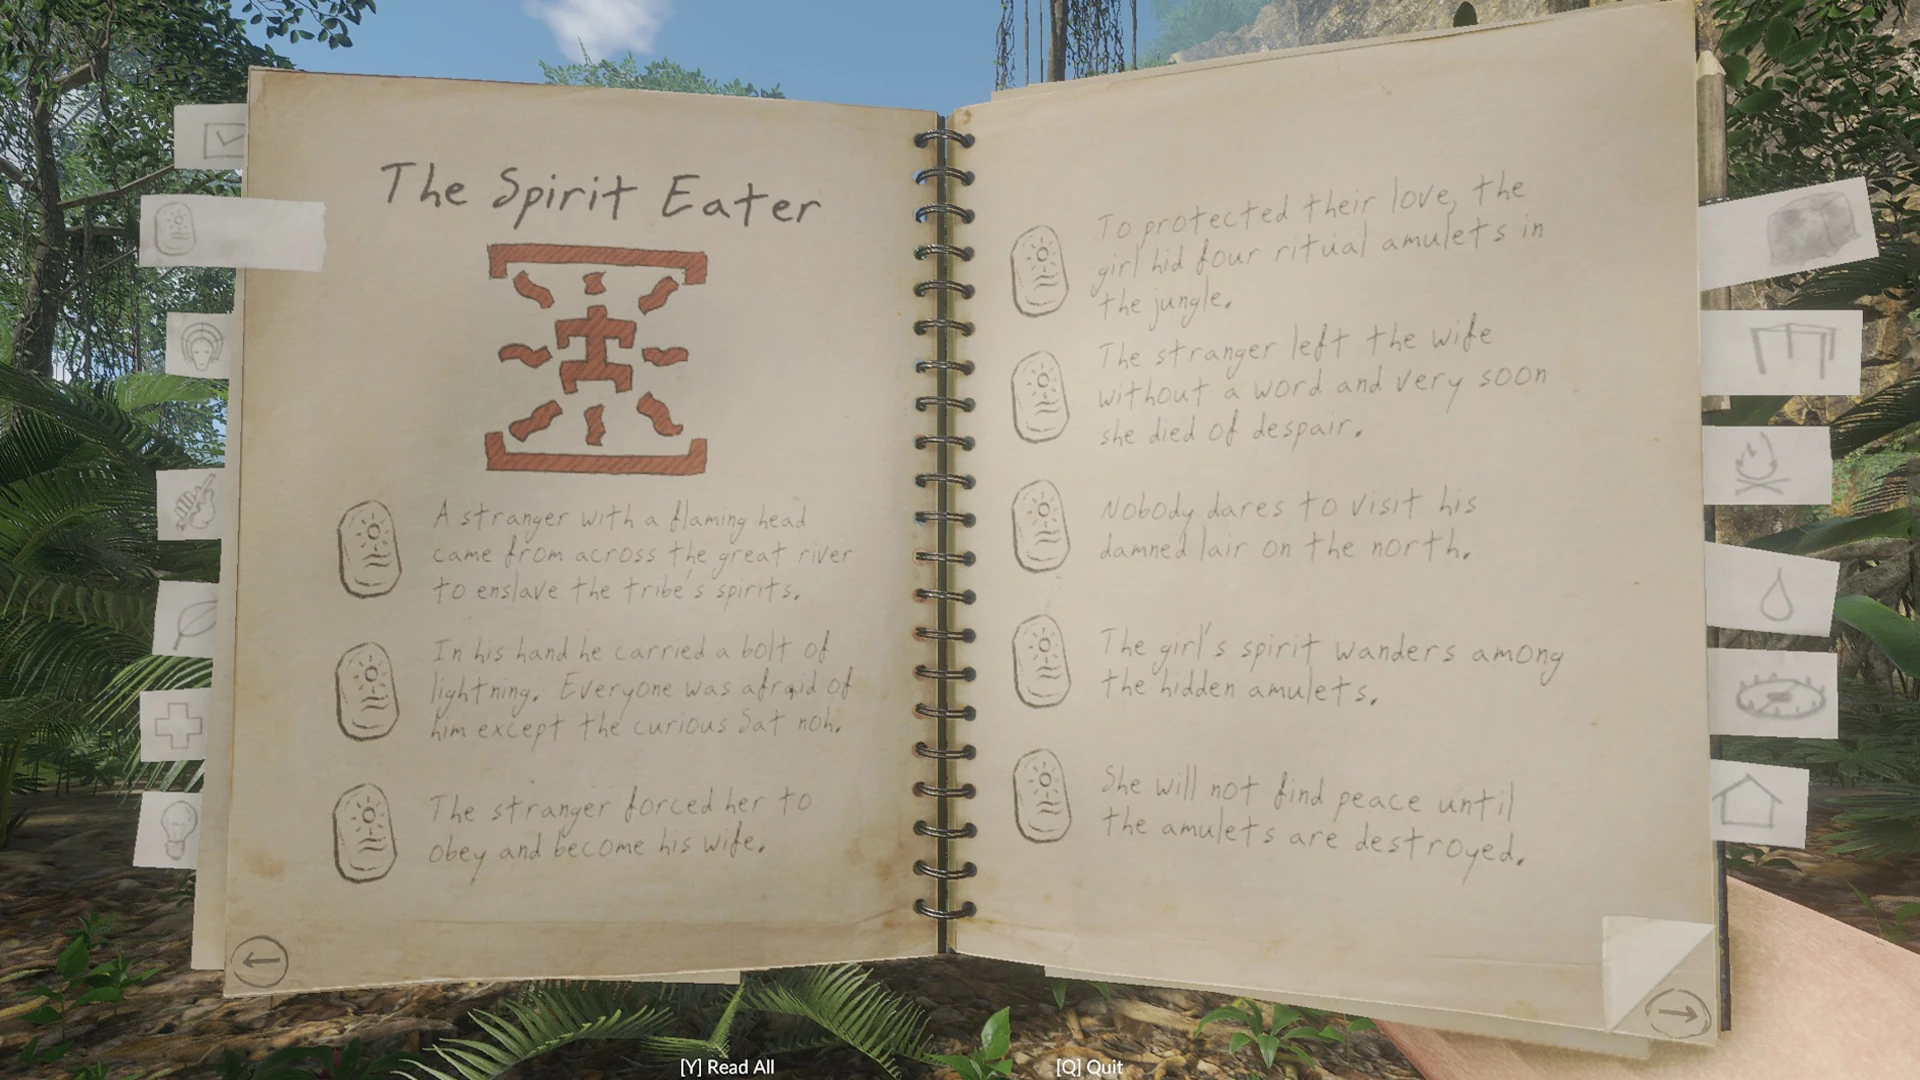 The Spirit Eater
A stranger with a flaming head
came from across the great river
to enslave the tribe's spirits.
In his hand he carried a bolt of
lightning. Everyone was afraid of
him except the curious Sat noh.
The stranger forced her to
obey and become his wife.
To protected their love, the
girl hid four ritual amulets in
the jungle.
The stranger left the wife
without a word and very soon
she died of despair.
Nobody dares to visit his
damned lair on the north.
The girl's spirit wanders among
the hidden amulets.
She will not find peace until
the amulets are destroyed.
[Y] Read All
[Q] Quit